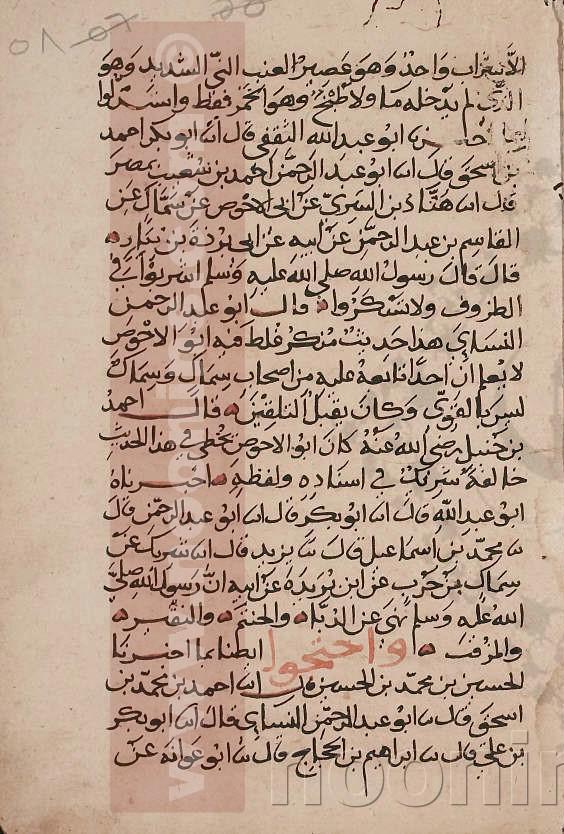 الاشراب واحد وهو عصير العنب الني الشديد وهو
الذي لم يدخله ما ولا طبخ وهو الخمر فقط واستدلوا
ابو عبد الله الثقفي قال اسا ابو بكر احمد
بن اسحق قال اسا ابو عبد الرحمن احمد بن شعيب بمصر
قال اسا هناد بن السري عن ابي الاحوص عن سماك عن
القاسم بن عبد الرحمن عن ابيه عن ابي بردة بن نيار
قال قال رسول الله صلى الله عليه وسلم اشربوا في
الظروف ولا تسكروا قال ابو عبد الرحمن
النساي هذا حديث منكر غلط فيه ابو الاحوص
لا نعلم ان احدا تابعه عليه من اصحاب سماك وسماك
ليس بالقوي وكان يقبل التلقين قال احمد
بن حنبل رضي الله عنه كان ابو الاحوص يخطي في هذا الحديث
خالفه شريك في اسناده ولفظه اخبرناه
ابو عبد الله قال اسا ابو بكر قال اسا ابو عبد الرحمن قال
سا محمد بن اسماعيل قال سا يزيد قال اسا شريك عن
سماك بن حرب عن ابن بريدة عن ابيه ان رسول الله صلى
الله عليه وسلم نهى عن الدباء والحنتم والنقير
والمزفت واحتجوا ايضا بما اخبرنا
الحسين بن محمد بن الحسين قال اسا احمد بن محمد بن
اسحق قال سا ابو عبد الرحمن النساي قال اسا ابو بكر
بن علي قال سا ابراهيم بن الحجاج قال سا ابو عوانة عن
noorin